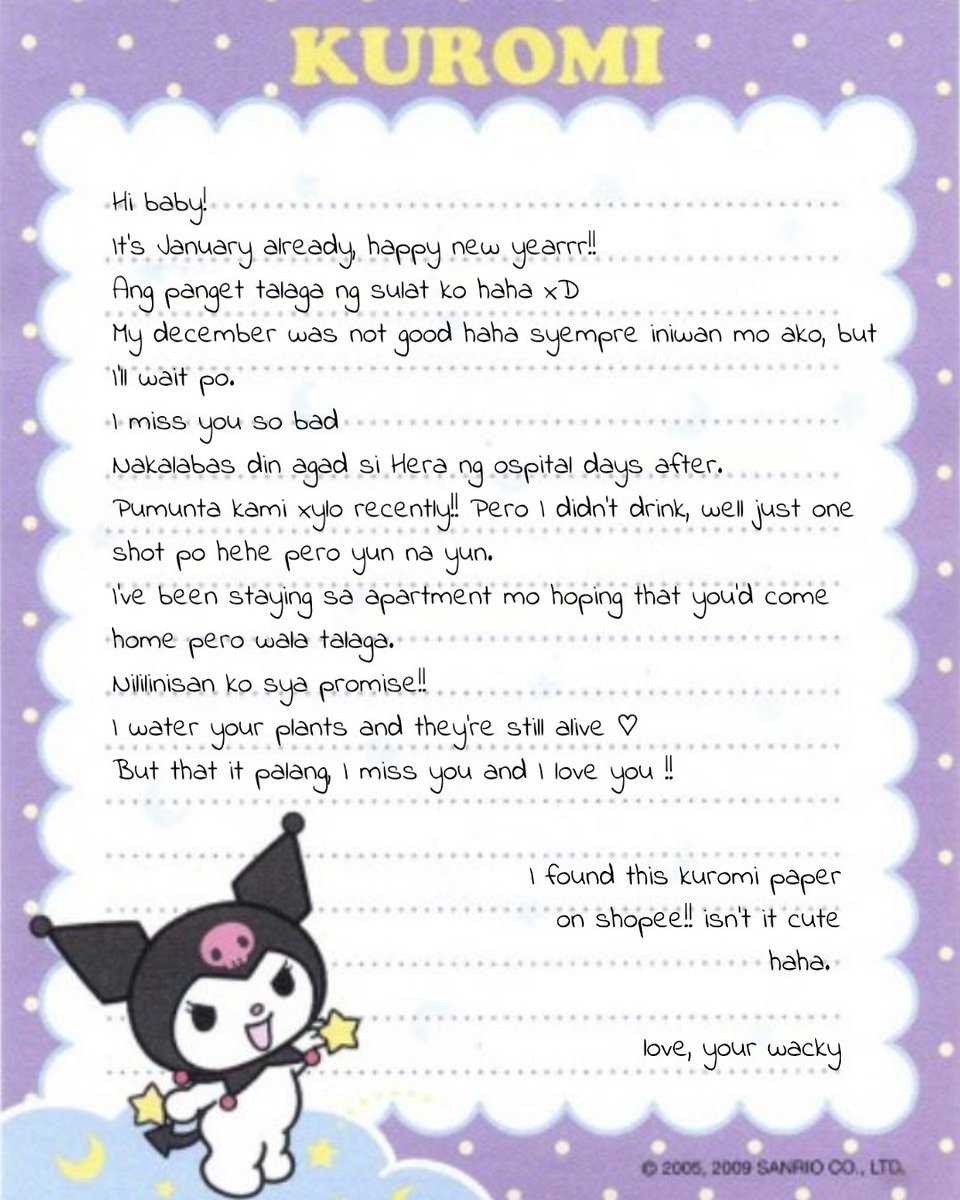 KUROMI
Hi baby!
It's January already, happy new yearrr!!
Ang panget talaga ng sulat ko haha xD
My december was not good haha syempre iniwan mo ako, but
I'll wait po.
I miss you so bad
Nakalabas din agad si Hera ng ospital days after.
Pumunta kami xylo recently!! Pero I didn't drink, well just one
shot po hehe pero yun na yun.
I've been staying sa apartment mo hoping that you'd come
home pero wala talaga.
Nililinisan ko sya promise!!
I water your plants and they're still alive ♡
But that it palang, I miss you and I love you !!
I found this kuromi paper
on shopee!! isn't it cute
haha.
love, your wacky
© 2005, 2009 SANRIO CO., LTD.